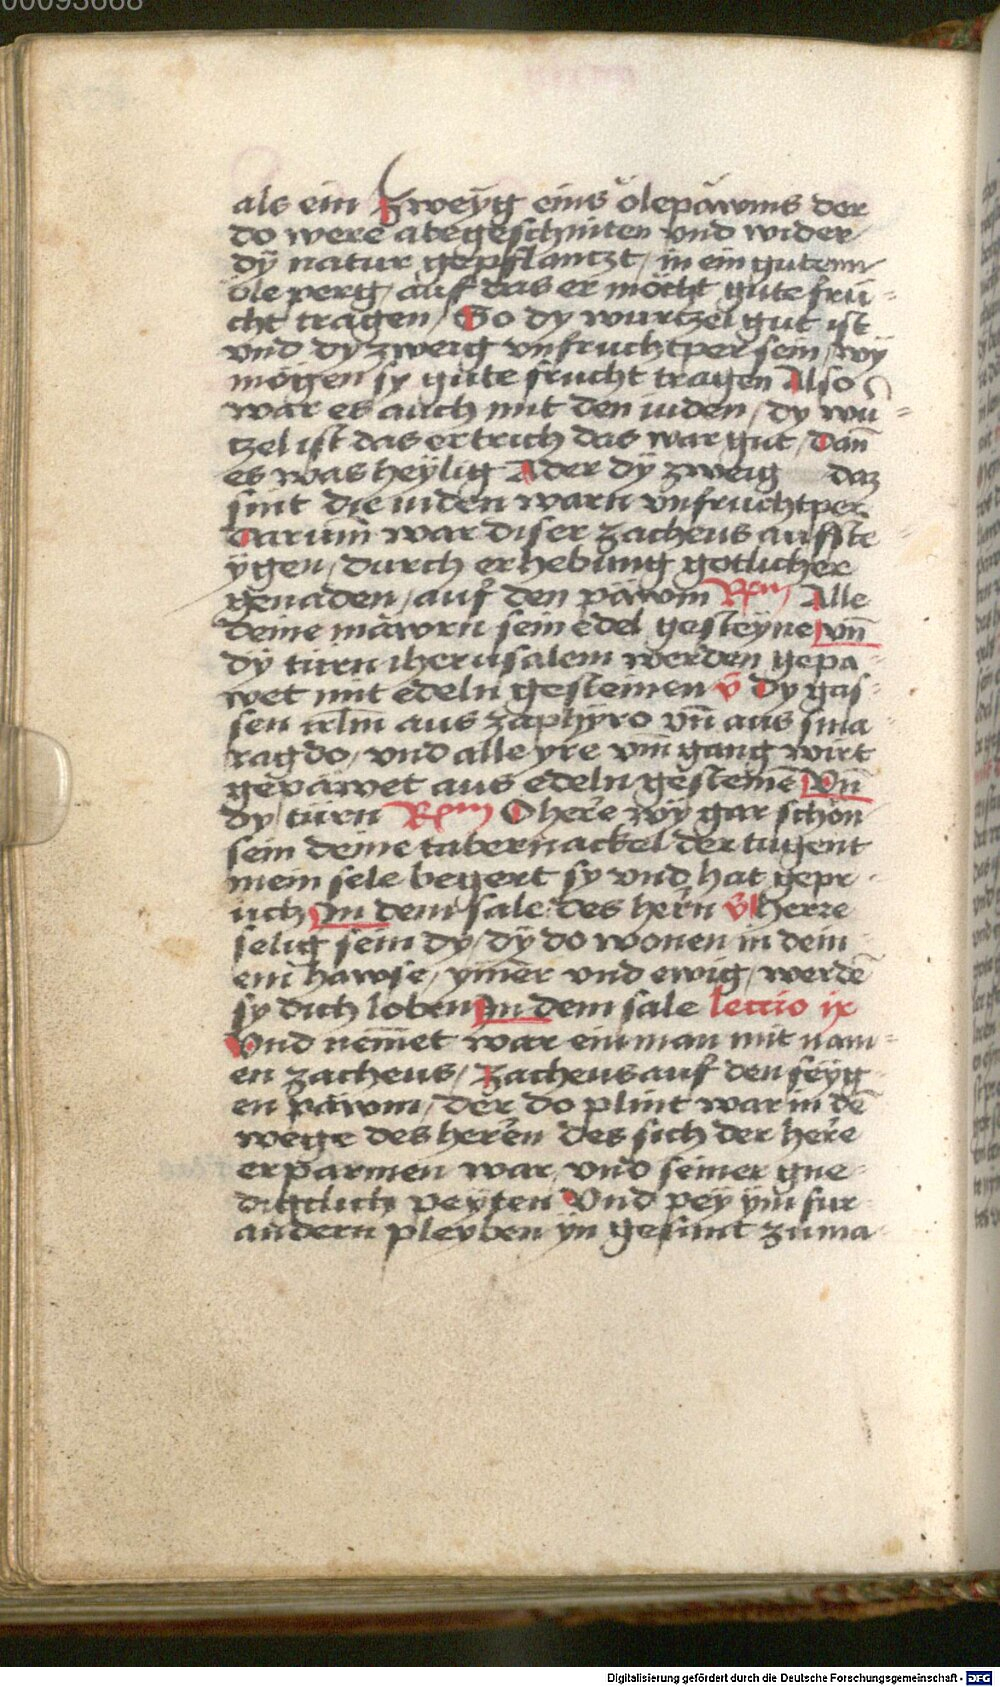 00093668
als ein zweyg eins ölepawms der
do were abegeschniten vnd wider
dÿ natur gepflantzt / in ein gutenn
öle perg / auf das er möcht gute frü-
cht tragen / So dy wurtzel gut ist
vnd dy zweig vnfruchtper sein / wÿ
mögen sy gute frucht tragen Also
war es auch mit den iuden / dy wu-
tzel ist das ertrich das war gut / dan̄
es was heÿlig Ader dÿ zweig daz
sint die iuden warn vnfruchtper
Darum̄ war diser zacheus auffste
ÿgen / durch erhebung gotlicher
genaden / auf den päwm Rm̄ Alle
deine mäwrn sein edel gesteÿne vn̄
dÿ türn iherusalem werden gepa-
wet mit edeln gesteinen v̄ Dy gas-
sen irlm̄ aus zaphÿro vn̄ aus sma
ragdo / vnd alle yre vm̄ gang wirt
gepäwet aus edeln gesteine̅ Vn̄
dy türn Rm̄ O here wÿ gar schön
sein deine tabernackel der tugent
mein sele begert sy vnd hat gepr-
uch In dem sale des hern v̄ Herre
selig sein dy / dÿ do wonen in dein
em hawse / ymer vnd ewig / werde̅
sy dich loben In dem sale lectio ix
Vnd nem̄et war ein man mit nam-
en zacheus / Zacheus auf den feÿg
en päwm / der do plint war in de̅
wege des herren des sich der here
erparmen war / vnd seiner gne-
digclich peÿten Vnd peÿ ÿm fur
andern pleyben ÿn gesunt zu ma
Digitalisierung gefördert durch die Deutsche Forschungsgemeinschaft - DFG